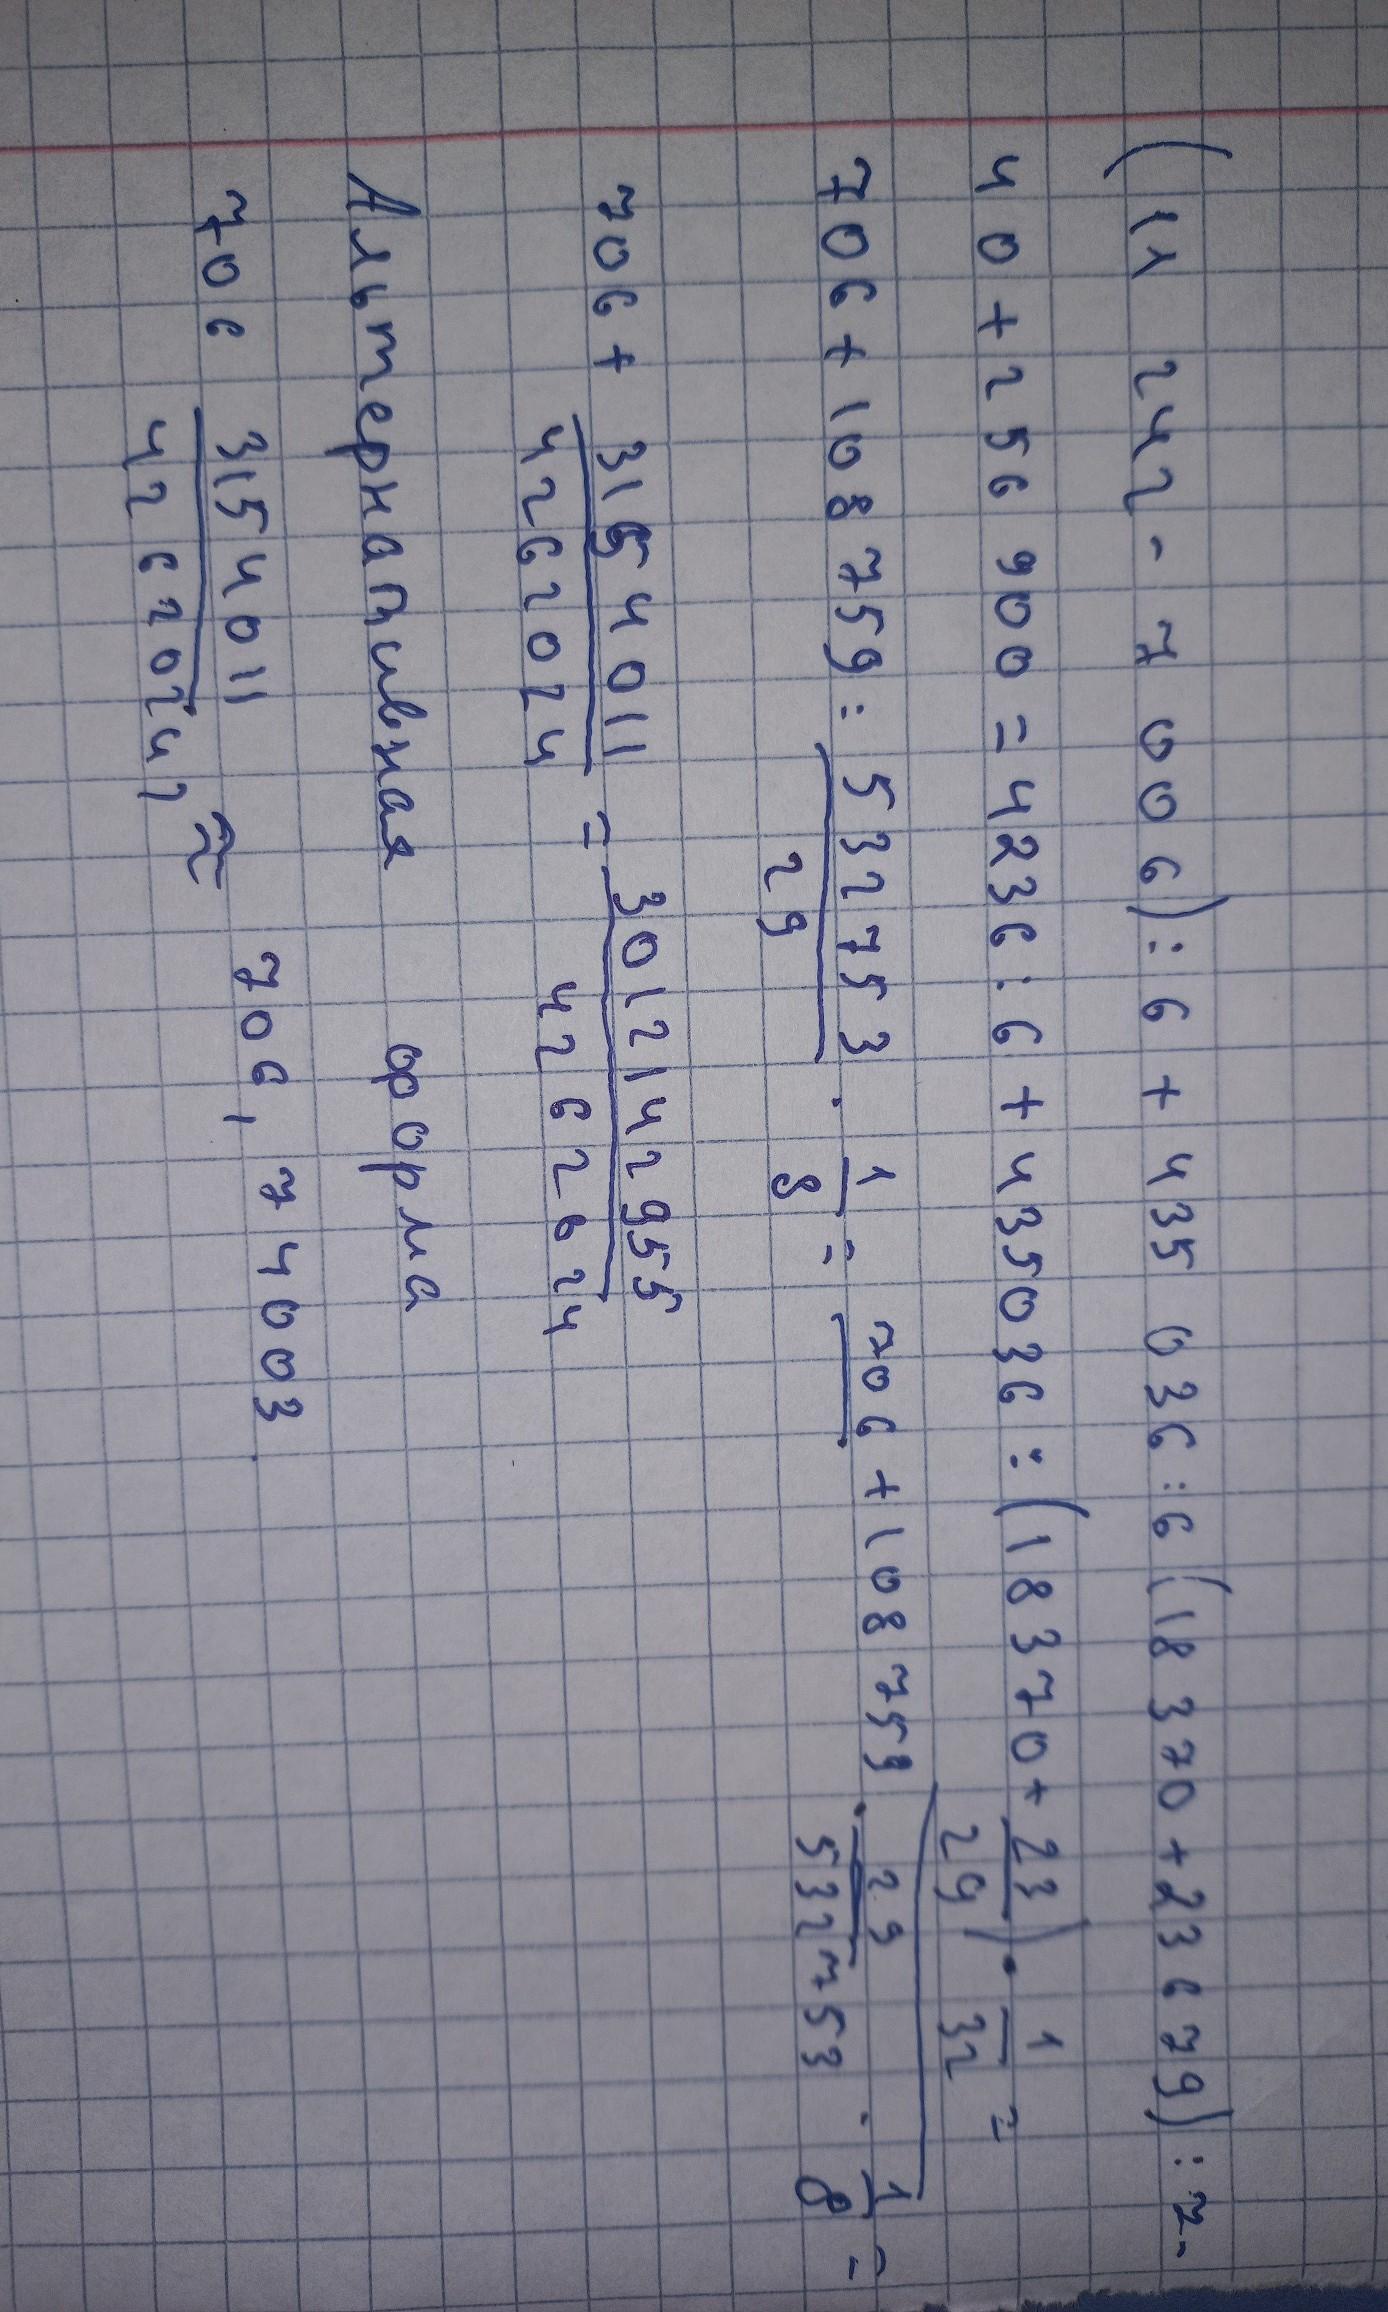 (11 242 - 7 006) : 6 + 435 036 : 6 (18 370 + 23 679) : 7-
40 + 256 900 = 4236 : 6 + 435036 : (18370 + 23/29) · 1/32 =
706 + 108 759 : 532753/29 · 1/8 = 706 + 108 759 · 29/532753 · 1/8 =
706 + 3154011/4262024 = 3012142955/4262024
Альтернативная форма
706 3154011/4262024 ≈ 706,74003